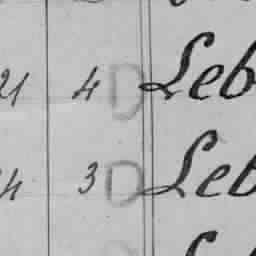 21 4 D Leb
4 3 D Leb